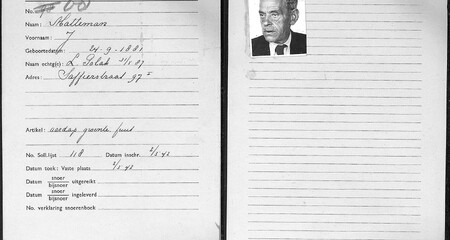 No.
Naam: Matteman
Voornaam: J
Geboortedatum: 21-9-1881
Naam echtg(e): L. Polak 31/5 87
Adres: Saffierstraat 97 I
Artikel: aardap. groente fruit
No. Soll.lijst 118 Datum inschr. 2/5 42
Datum toek: Vaste plaats 2/5 42
Datum snoer
bijsnoer uitgereikt:
Datum snoer
bijsnoer ingeleverd
No. verklaring snoerenboek